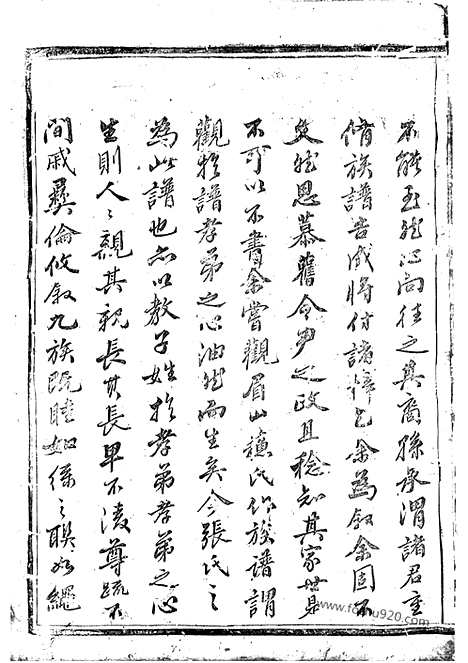 不能至然心尚往之其裔孫承渭諸君重
脩族譜告成將付諸梓乞余為敘余固不
文然思慕舊令尹之政且稔知其家世是
不可以不書余嘗觀眉山蘇氏作族譜謂
觀於譜孝弟之心油然而生矣今張氏之
為此譜也亦以教子姓於孝弟孝弟之心
生則人〻親其親長其長卑不淩尊疏不
間戚彝倫攸敘九族既睦如綿之聯如繩
www.fomu920.com